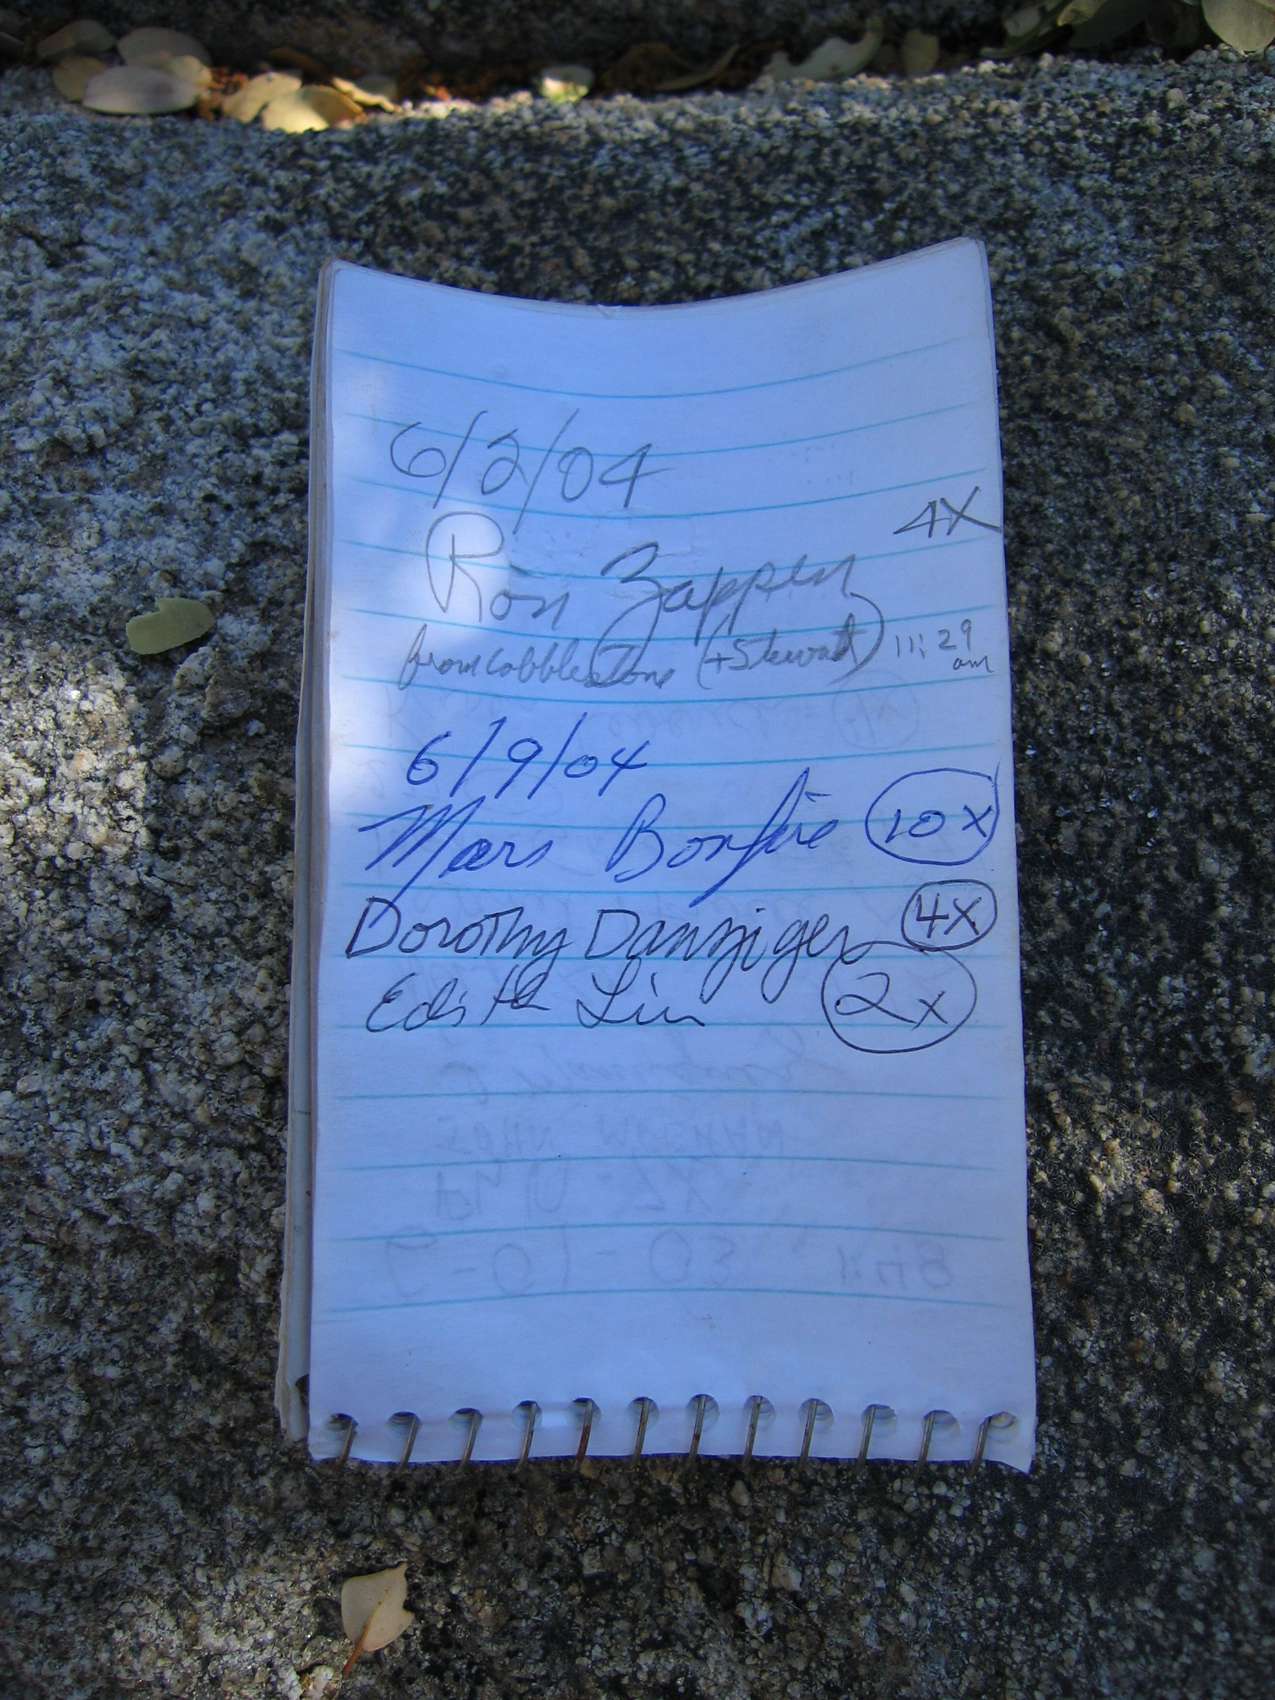 6/2/04
4X
Ron Zappen
from cobblestone (+ Stewart) 11:29 am
6/9/04
Mars Bonfire 10X
Dorothy Danziger 4X
Edith Lin 2x